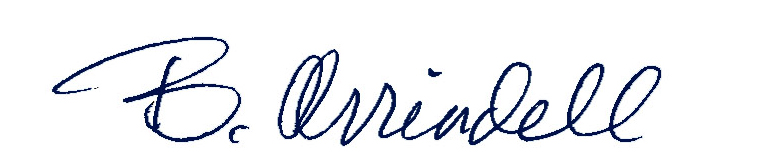 B. Arrindell